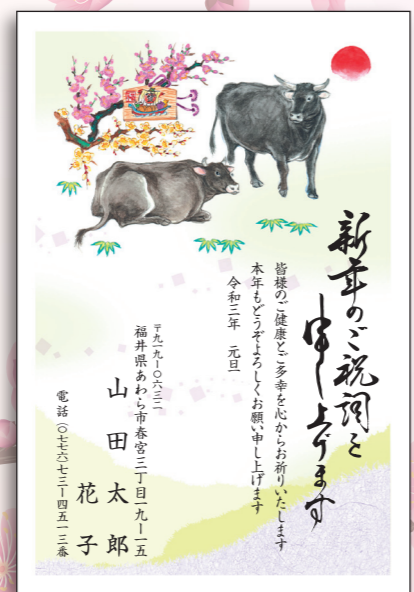 新年のご祝詞を
申し上げます
皆様のご健康とご多幸を心からお祈りいたします
本年もどうぞよろしくお願い申し上げます
令和三年 元旦
〒九一九ー〇六三二
福井県あわら市春宮三丁目一九ー一五
山田太郎
花子
電話(〇七七六)七三ー四五一三番